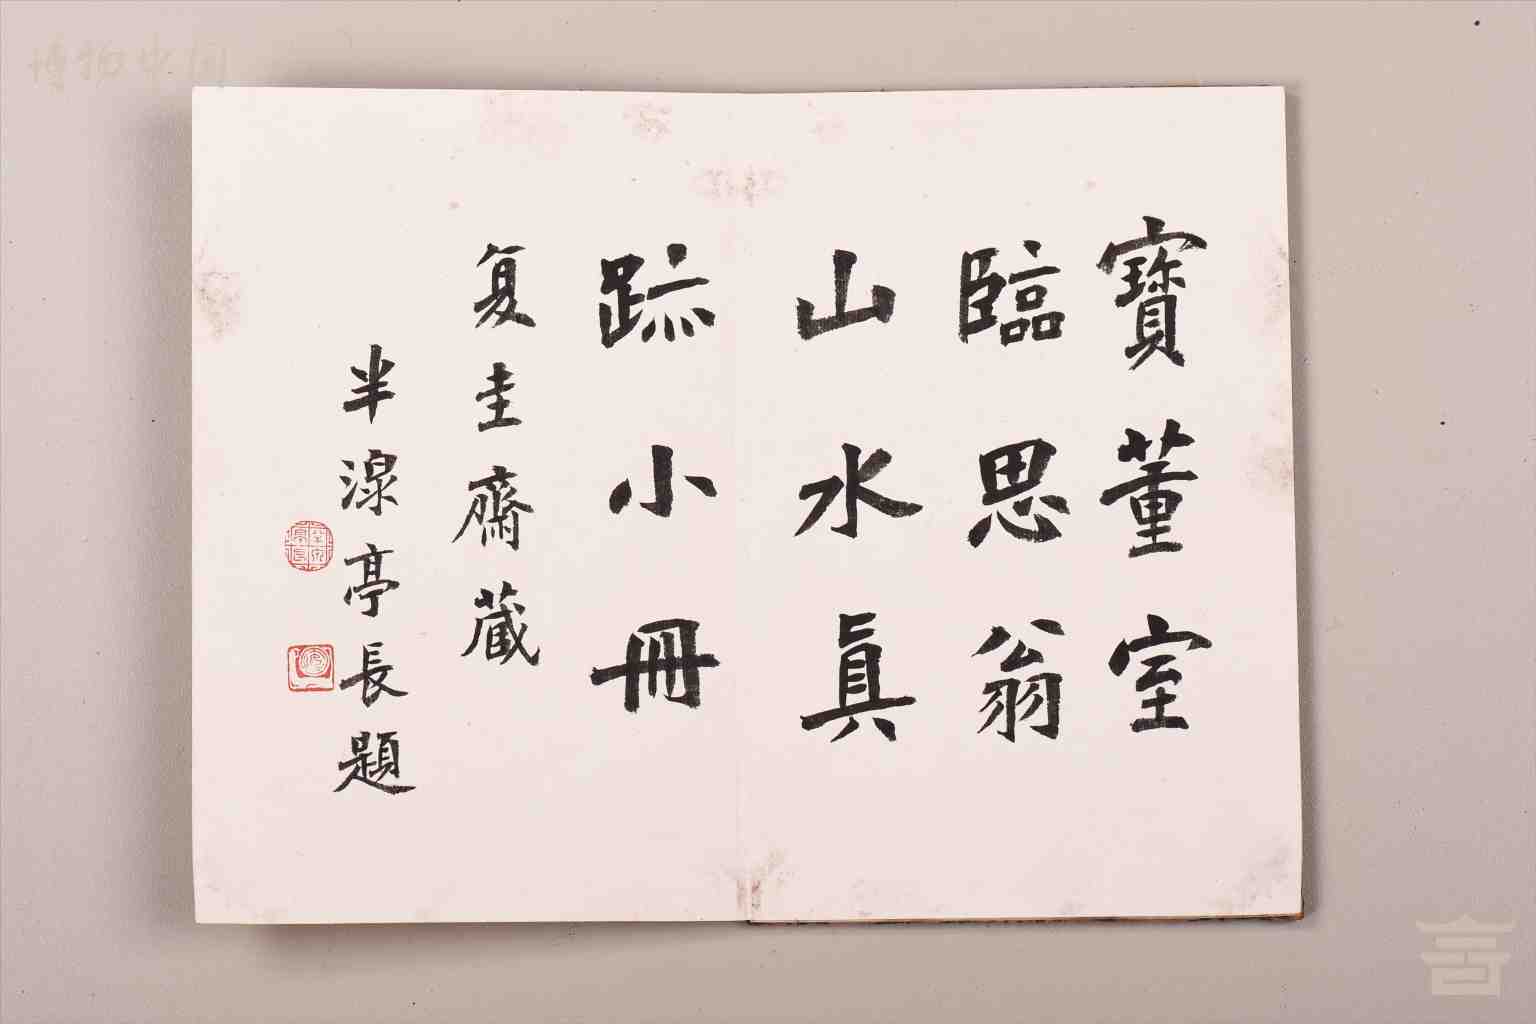 寶董室
臨思翁
山水眞
跡小冊
复圭齋藏
半湶亭長題
博物中国